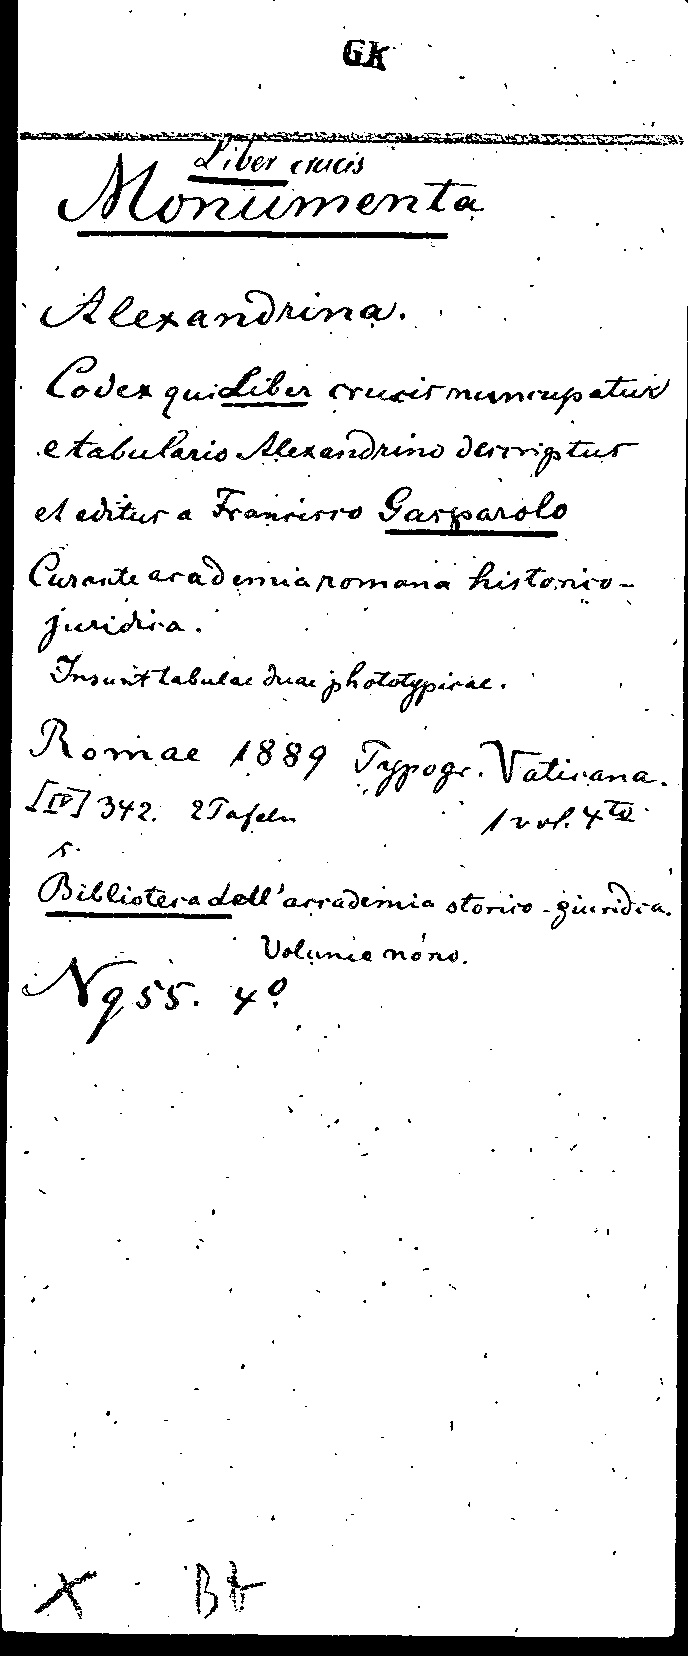 GK
Liber crucis
Monumenta
Alexandrina.
Codex qui Liber crucis nuncupatur
e tabulario Alexandrino descriptus
et editus a Francisco Gasparolo
Curante academia romana historico-
juridica.
Insunt tabulae duae phototypicae.
Romae 1889 Typogr. Vaticana.
[IV] 342. 2 Tafeln 1 vol. 4to
s.
Biblioteca dell'accademia storico-giuridica.
Volume nono.
Nq 55. 4o
X